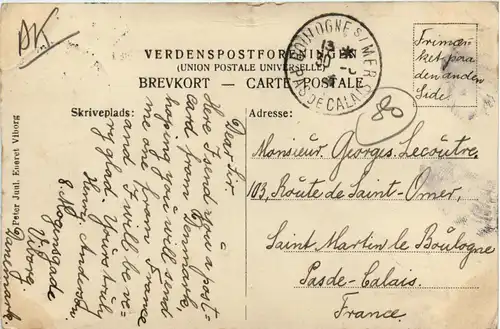 DK
VERDENSPOSTFORENINGEN
(UNION POSTALE UNIVERSELLE)
BREVKORT — CARTE POSTALE
BOULOGNE S/MER
PAS DE CALAIS
Frimær-
ket paa
den anden
Side
80
Skriveplads:
Adresse:
Dear Sir
Here I send you a post-
card from Denmark,
hoping you will send
me one from France
and I will be ve-
ry glad. Yours truly
Henry Andersen.
Viborg
Danemark
Monsieur. Georges. Lecoutre,
103, Route de Saint-Omer,
Saint Martin le Boulogne
Pas-de-Calais.
France.
Peter Juul. Eneret Viborg